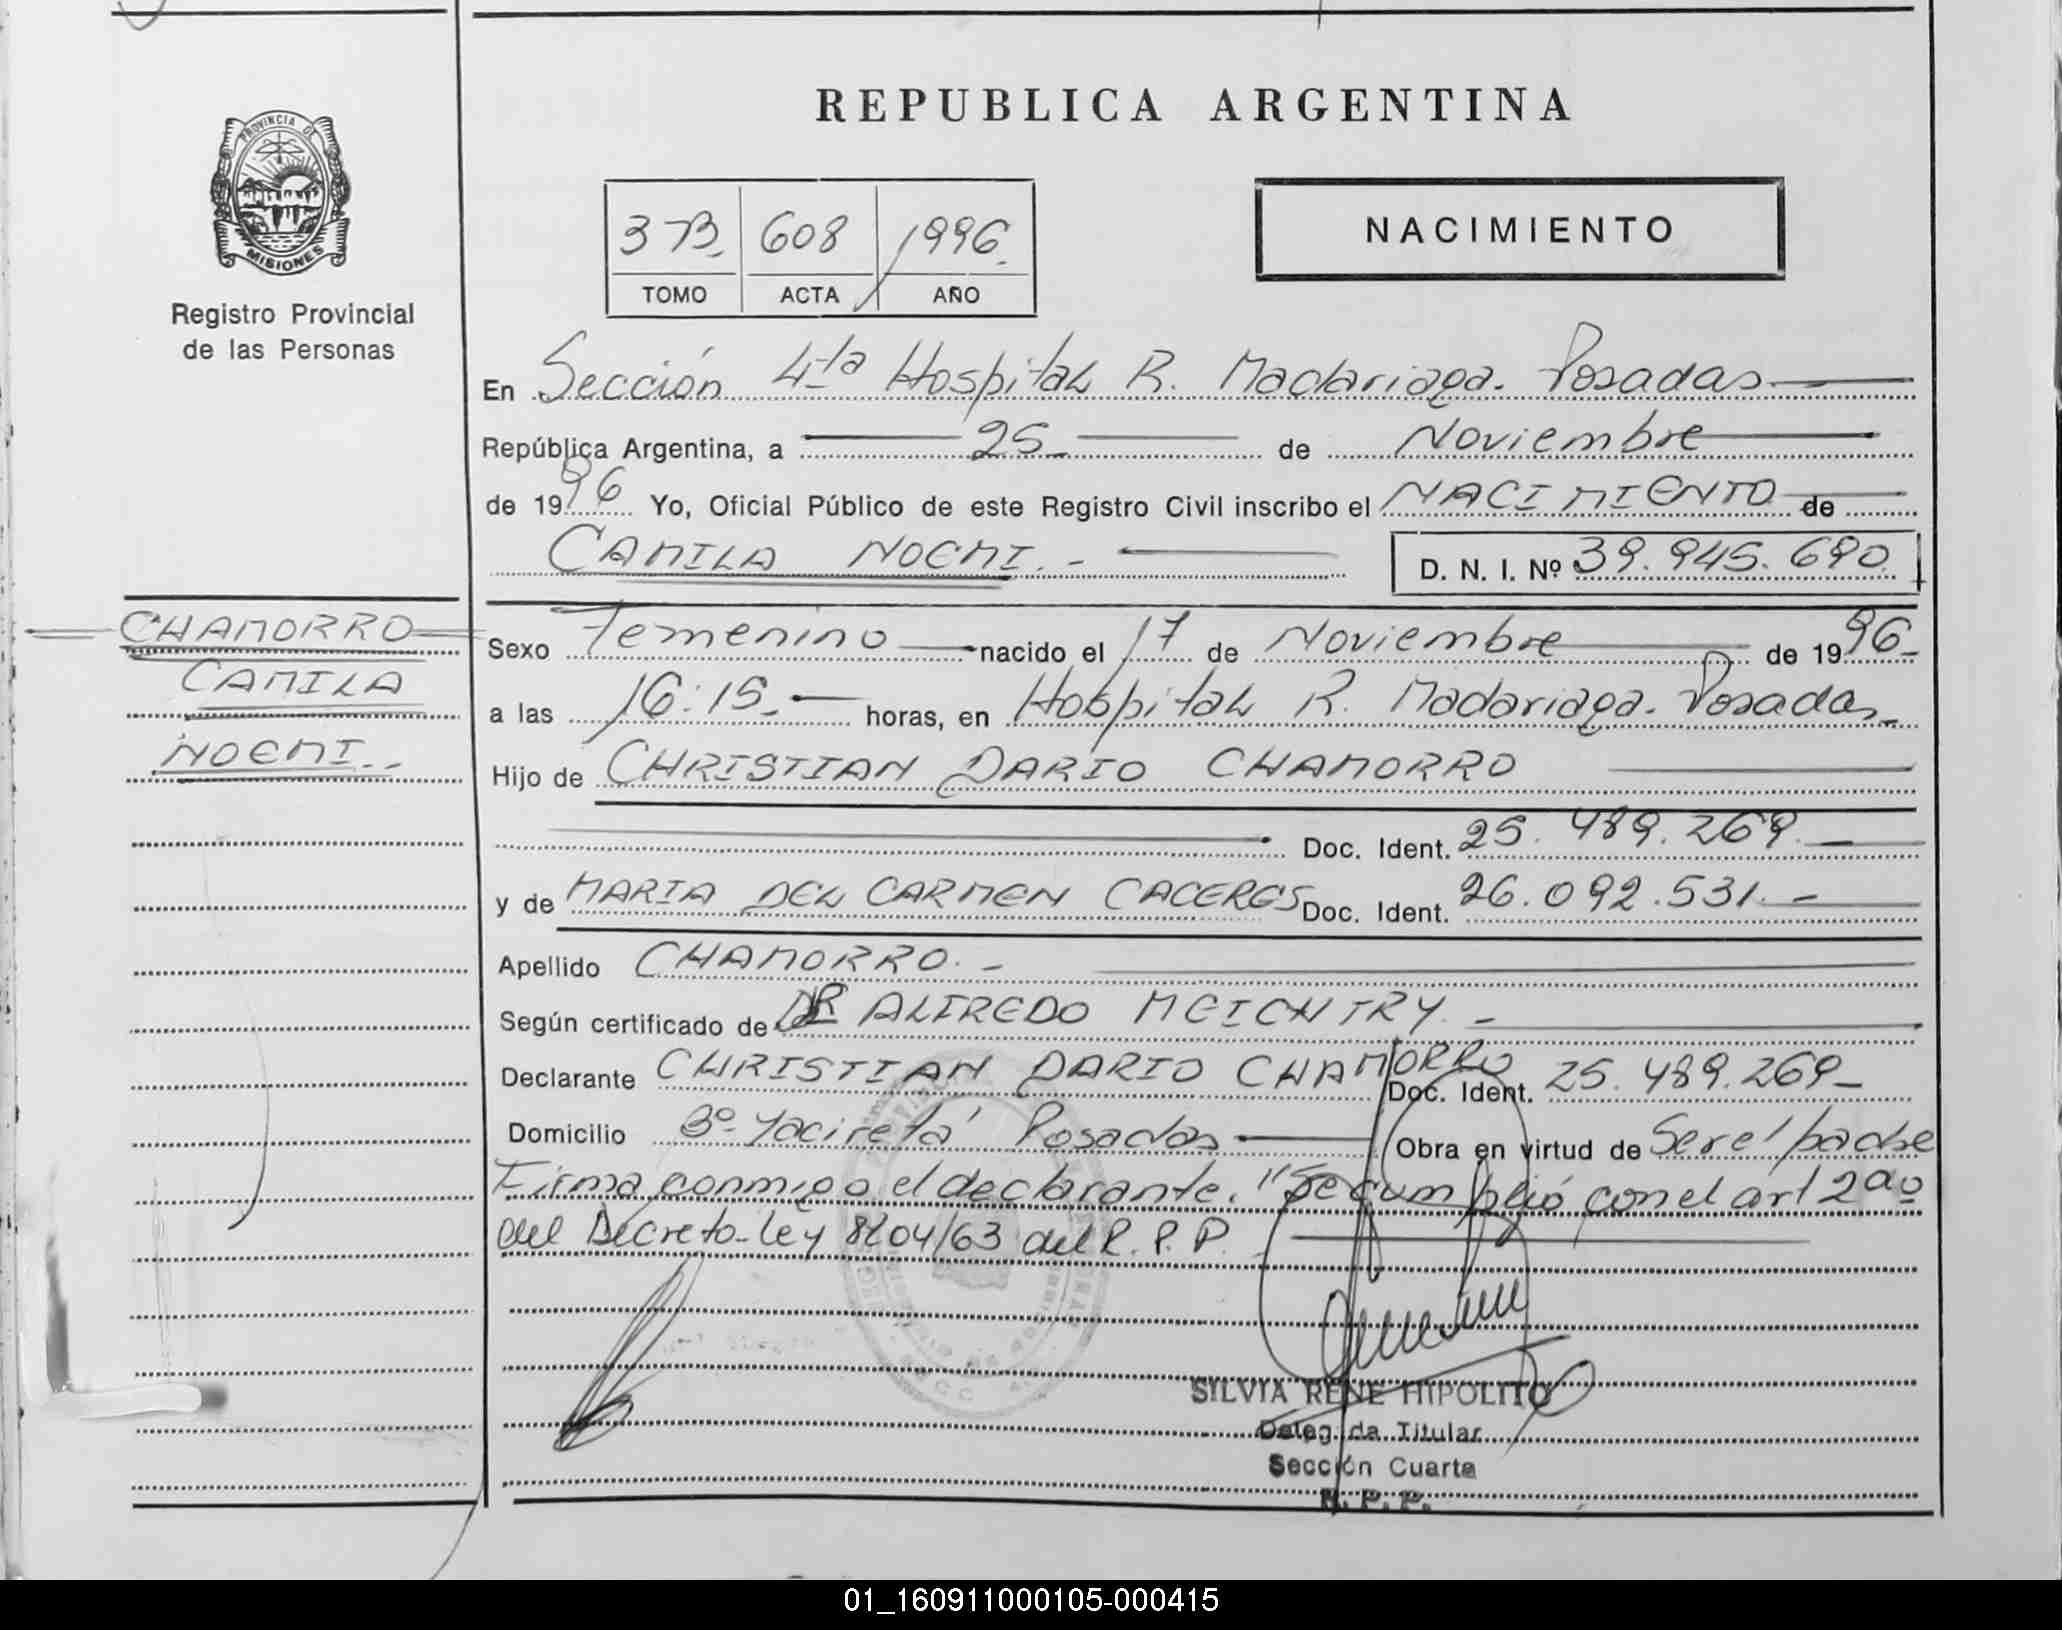 REPUBLICA ARGENTINA
PROVINCIA DE
MISIONES
Registro Provincial
de las Personas
373. 608 1996.
TOMO ACTA AÑO
NACIMIENTO
En Sección 4ta Hospital R. Madariaga. Posadas
República Argentina, a 25 de Noviembre
de 1996 Yo, Oficial Público de este Registro Civil inscribo el NACIMIENTO de
CAMILA NOEMI. - D. N. I. Nº 39.945.690
CHAMORRO
CAMILA
NOEMI.-
Sexo Femenino nacido el 17 de Noviembre de 1996
a las 16:15 horas, en Hospital R. Madariaga. Posadas
Hijo de CHRISTIAN DARIO CHAMORRO
Doc. Ident. 25.489.269
y de MARIA DEL CARMEN CACERES Doc. Ident. 26.092.531.-
Apellido CHAMORRO.-
Según certificado de DR ALFREDO
Declarante CHRISTIAN DARIO CHAMORRO Doc. Ident. 25.489.269
Domicilio Bº Yaciretá Posadas Obra en virtud de Ser el padre
Firma conmigo el declarante. "Se cumplió con el art 2do
del Decreto-Ley 8204/63 del R.P.P.
SILVIA RENE HIPOLITO
Delegada Titular
Sección Cuarta
R. P. P.
01_160911000105-000415